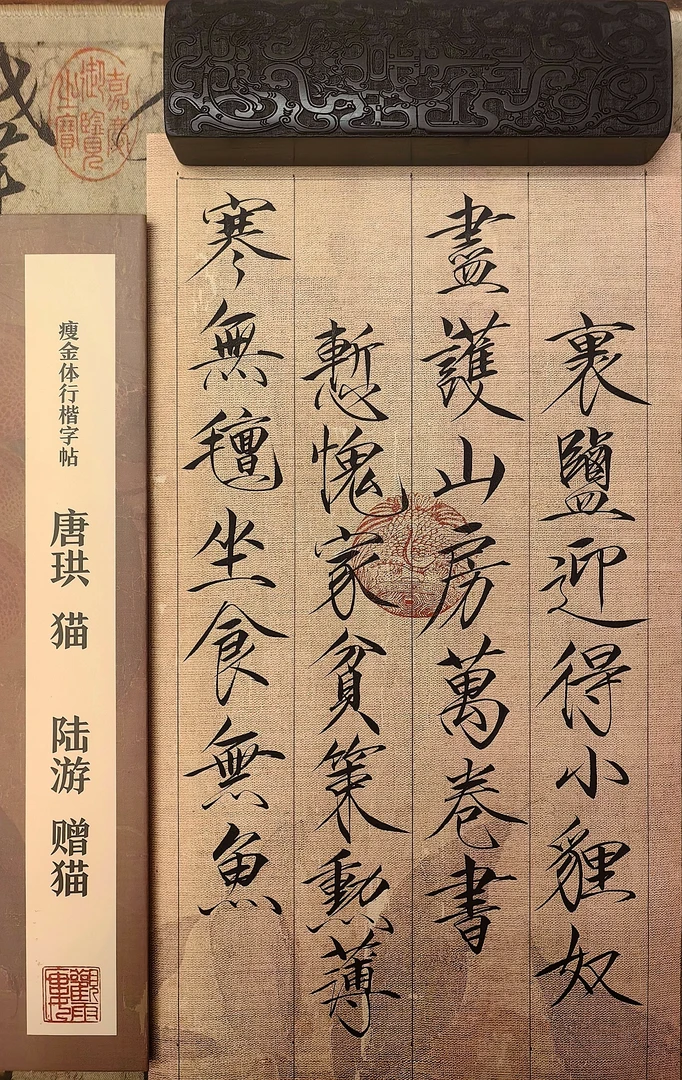 裹鹽迎得小貍奴
盡護山房萬卷書
慙愧家貧策勳薄
寒無氈坐食無魚
瘦金体行楷字帖
唐珙 猫 陆游 赠猫
嘉慶御覽之寶